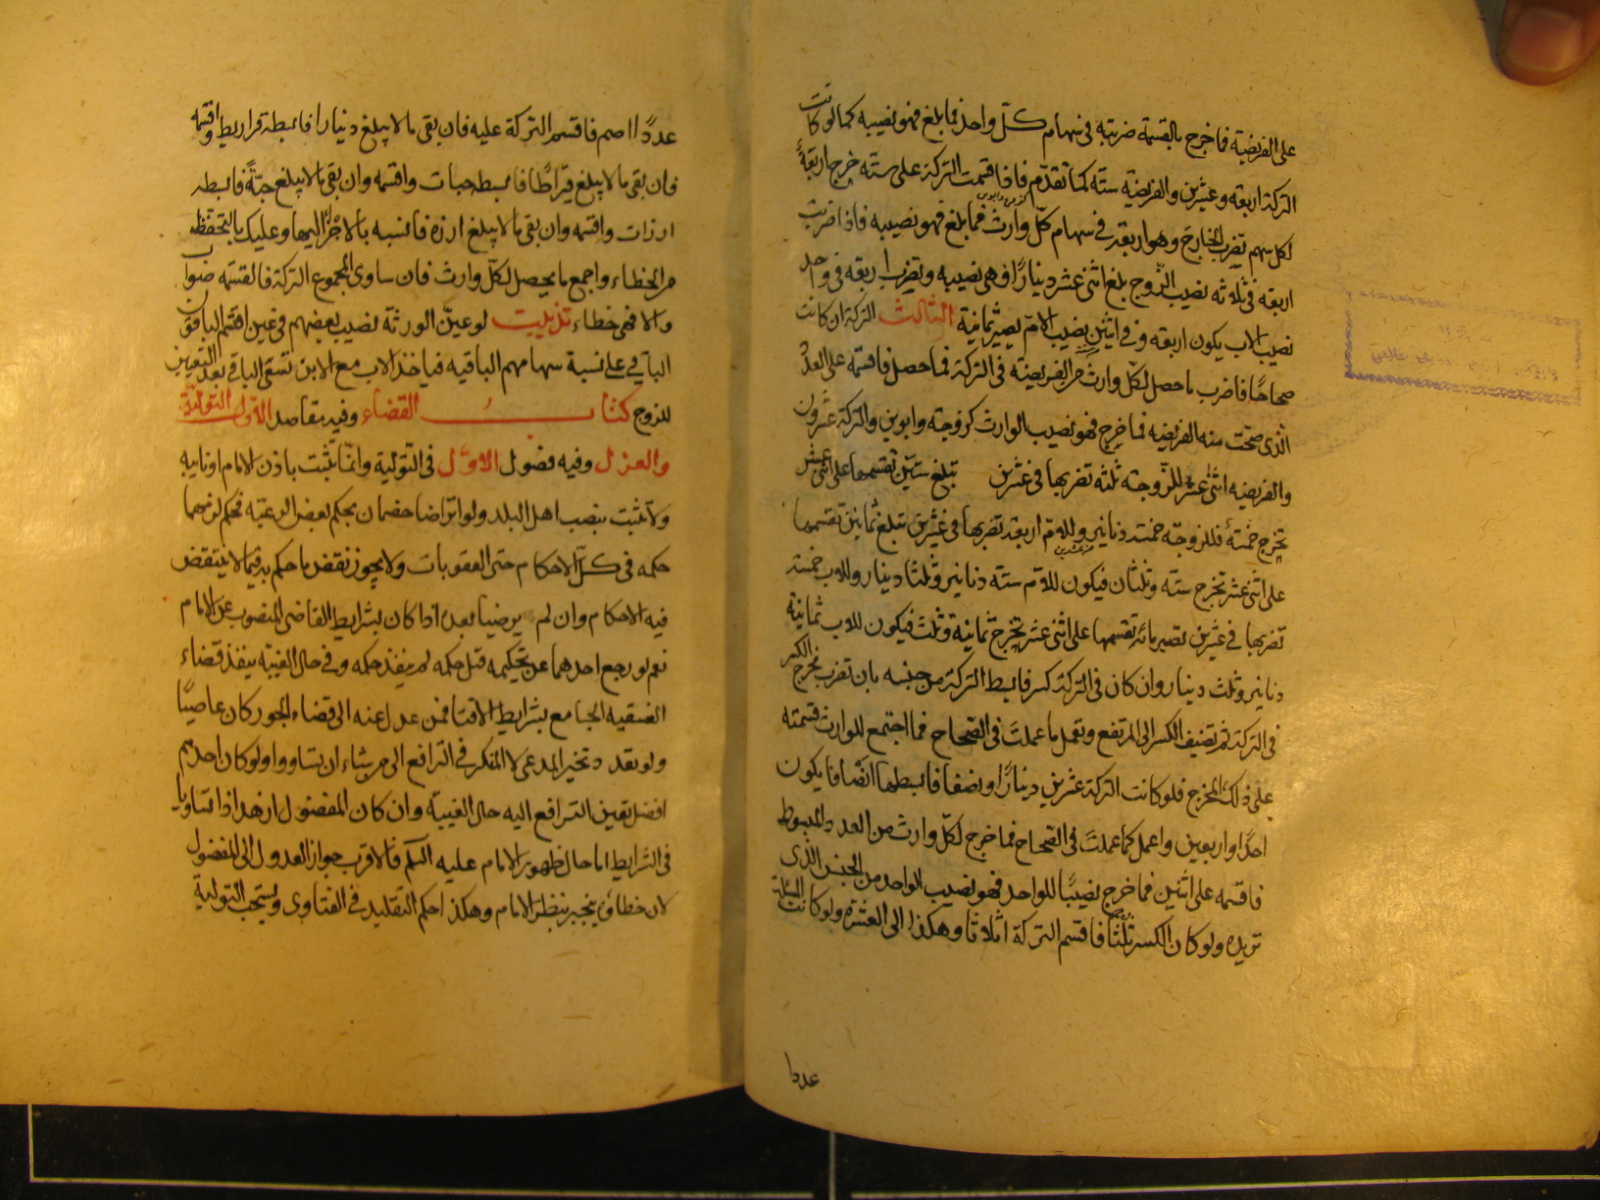 على الفريضة فما خرج بالقسمة ضربته فى سهام كل واحد فما بلغ فهو نصيبه كما لو كانت
التركة اربعه وعشرين والفريضه سته كما تقدم فاذا قسمت التركة على سته خرج اربعة
لكل سهم تضرب الخارج وهو اربعة فى سهام كل وارث فما بلغ فهو نصيبه فاذا ضربت
اربعه فى ثلاثه نصيب الزوج بلغ اثنى عشر دينارا فهى نصيبه وتضرب اربعه فى واحد
نصيب الاب يكون اربعه وفى اثنين نصيب الام يصير ثمانية الثالث التركة ان كانت
صحاحا فاضرب ما حصل لكل وارث من الفريضه فى التركة فما حصل فاقسمه على العدد
الذى صحت منه الفريضه فما خرج فهو نصيب الوارث كزوجته وابوين والتركة عشرون
والفريضه اثنى عشر للزوجة ثلثه تضربها فى عشرين تبلغ ستين تقسمها على اثنى عشر
تخرج خمسة فللزوجة خمسة دنانير وللام اربعة تضربها فى عشرين تبلغ ثمانين تقسمها
على اثنى عشر تخرج سته وثلثان فيكون للام سته دنانير وثلثا دينار وللاب خمسة
تضربها فى عشرين تصير مائة تقسمها على اثنى عشر تخرج ثمانية وثلث فيكون للاب ثمانية
دنانير وثلث دينار وان كان فى التركة كسر فابسط التركة من جنسه بان تضرب مخرج الكسر
فى التركة ثم تضيف الكسر الى المرتفع وتعمل ما عملت فى الصحاح فما اجتمع للوارث قسمته
على ذلك المخرج فلو كانت التركة عشرين دينارا ونصفا فابسطها انصافا يكون
احدا واربعين واعمل كما عملت فى الصحاح فما خرج لكل وارث من العدد المبسوط
فاقسمه على اثنين فما خرج نصيبا للواحد فهو نصيب الواحد من الجنس الذى
تريده ولو كان الكسر ثلثا فاقسم التركة اثلاثا وهكذا الى العشرة ولو كانت المسئلة
عددا
عددا اصم فاقسم التركة عليه فان بقى ما لا يبلغ دينارا فابسطه قراريط واقسمه
فان بقى ما لا يبلغ قيراطا فابسطه حبات واقسمه وان بقى ما لا يبلغ حبة فابسطه
ارزات واقسمه وان بقى ما لا يبلغ ارزه فانسبه بالاجزاء اليها وعليك بالتحفظ
من الخطاء واجمع ما يحصل لكل وارث فان ساوى المجموع التركة فالقسمه صواب
والا فهى خطاء تذنيب لو عين الورثة نصيب بعضهم فى عين اقتسم الباقون
الباقى على نسبة سهامهم الباقيه فياخذ الاب مع الابن تسعى الباقى بعد التعيين
للزوج كتاب القضاء وفيه مقاصد الاول التولية
والعزل وفيه فصول الاول فى التولية وانما تثبت باذن الامام او نايبه
ولا تثبت بنصب اهل البلد ولو تراضا خصمان بحكم بعض الرعية فحكم لزمهما
حكمه فى كل الاحكام حتى العقوبات ولا يجوز نقض ما حكم به فيما لا ينتقض
فيه الاحكام وان لم يرضيا بعد اذا كان بشرايط القاضى المنصوب عن الامام
نعم لو رجع احدهما عن تحكيمه قبل حكمه لم ينفذ حكمه وفى حال الغيبه ينفذ قضاء
الفقيه الجامع بشرايط الافتا فمن عدل عنه الى قضاء الجور كان عاصيا
ولو تعدد تخير المدعى لا المنكر فى الترافع الى من يشاء ان تساووا ولو كان احدهم
افضل تعين الترافع اليه حال الغيبة وان كان المفضول ازهد اذا تساويا
فى الشرايط اما حال ظهور الامام عليه السلم فالاقرب جواز العدول الى المفضول
لان خطاؤه ينجبر بنظر الامام وهكذا حكم التقليد فى الفتاوى ويستحب التولية